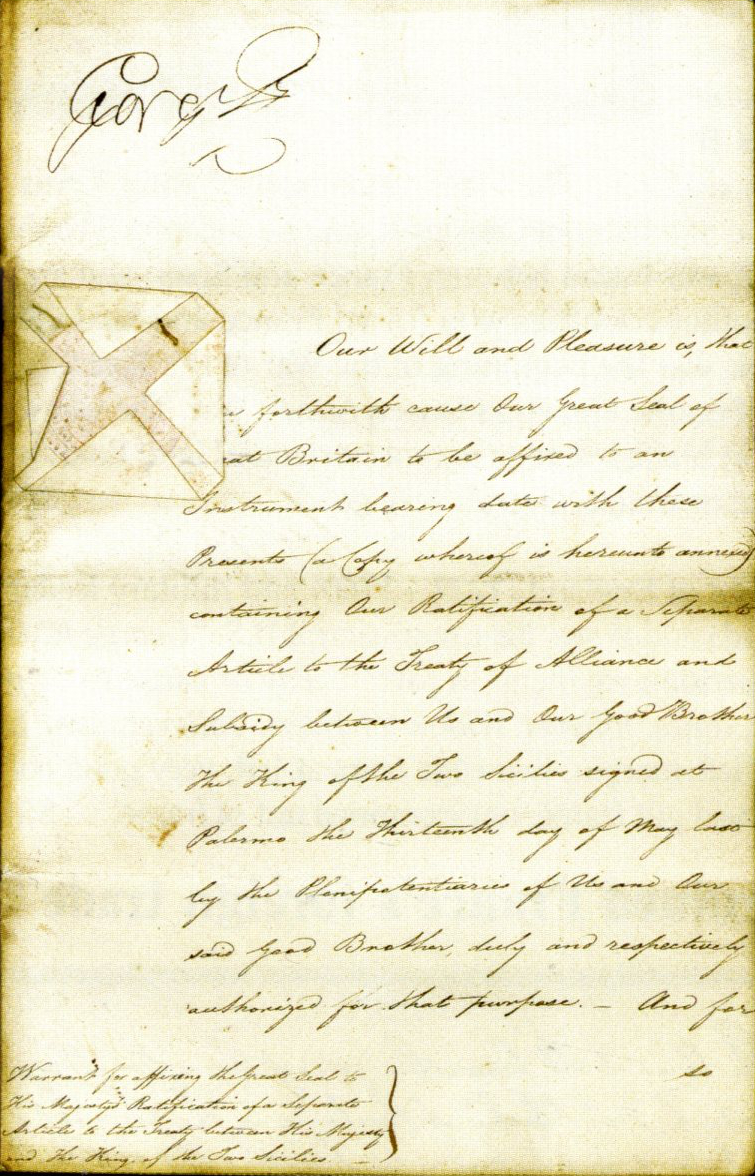 George R
Our Will and Pleasure is, that
forthwith cause Our Great Seal of
Britain to be affixed to an
Instrument bearing date with these
Presents (a Copy whereof is hereunto annexed)
containing Our Ratification of a Separate
Article to the Treaty of Alliance and
Subsidy between Us and Our Good Brother
The King of the Two Sicilies signed at
Palermo the Thirteenth day of May last
by the Plenipotentiaries of Us and Our
said Good Brother, duly and respectively
authorized for that purpose. — And for
so
Warrant for affixing the Great Seal to
His Majesty's Ratification of a Separate
Article to the Treaty between His Majesty
and The King of the Two Sicilies. —